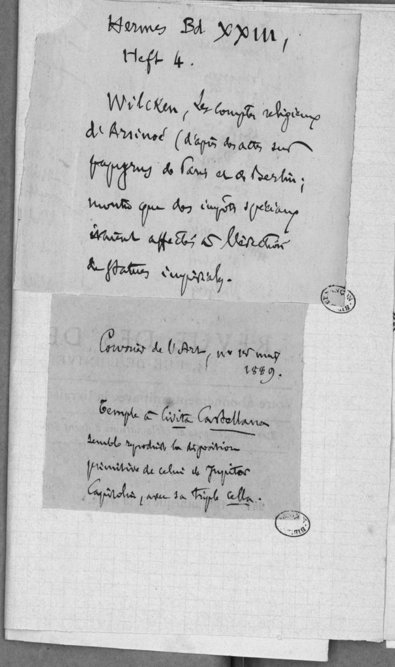 Hermes Bd XXIII,
Heft 4.
Wilcken, Les comptes religieux
d'Arsinoé (d'après des actes sur
papyrus de Paris et de Berlin;
montre que des impôts spéciaux
étaient affectés à l'érection
de statues impériales.
Courrier de l'Art, n° 15 mars
1889.
Temple à Civita Castellana
semble reproduire la disposition
primitive de celui de Jupiter
Capitolin, avec sa triple cella.